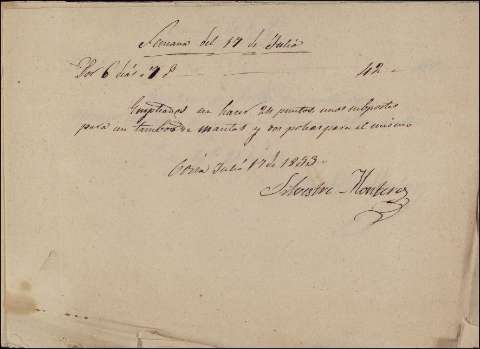 Semana del 17 de Julio
Por 6 dias á 7 42
Empleados en hacer 24 puntos unos subportes
para un tambor de mantas y dos para el mismo
Coria Julio 17 de 1853
Silvestre Montero